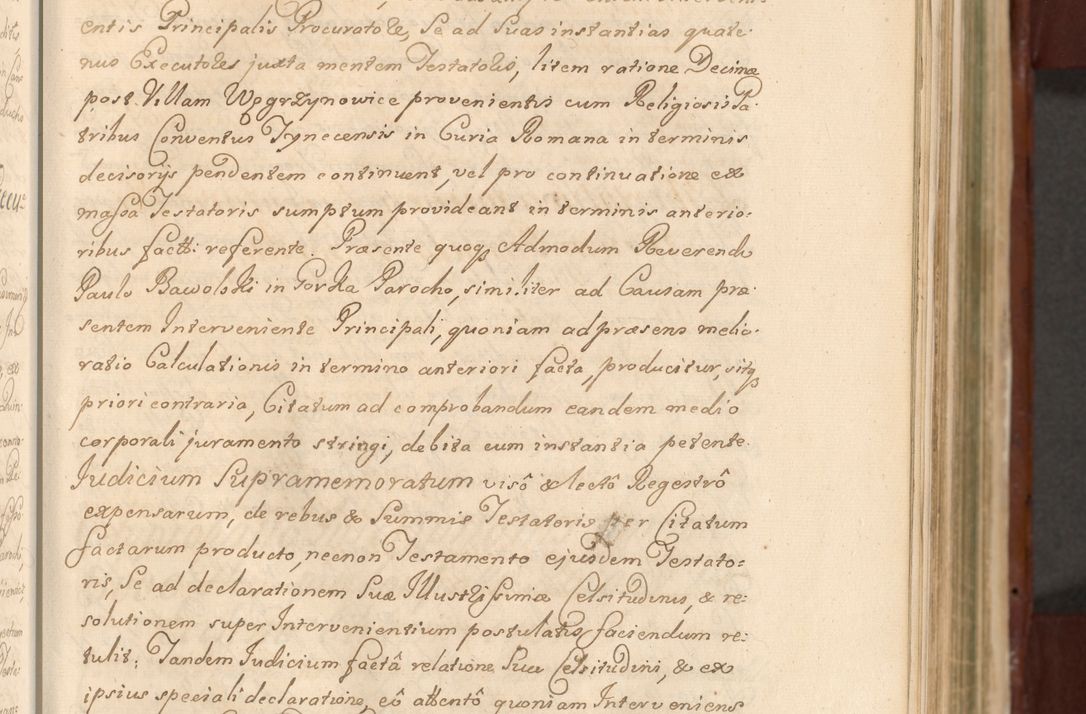 entis Principalis Procuratore, Se ad Suas instantias quate-
nus Executores juxta mentem Testatoris, litem ratione Decimæ
post Villam Węgrzynowice provenientis cum Religiosis Pa-
tribus Conventus Tynecensis in Curia Romana in terminis
decisorijs pendentem continuent, vel pro continuatione ex
massa Testatoris sumptum provideant in terminis anterio-
ribus factt: referente. Præsente quoqꝫ Admodum Reverendo
Paulo Bawolski in Gorka Parocho, similiter ad Causam præ-
sentem Interveniente Principali, quoniam ad præsens melio-
ratio Calculationis in termino anteriori facta, producitur, sitqꝫ
priori contraria, Citatum ad comprobandum eandem medio
corporali juramento stringi, debita cum instantia petente.
Judicium Supramemoratum visô & lectô Regestrô
expensarum, de rebus & Summis Testatoris per Citatum
factarum producto, necnon Testamento ejusdem Testato=
ris, Se ad declarationem Suæ Illustrissimæ Celsitudinis, & re=
solutionem super Intervenientium postulatis faciendum re=
tulit; Tandem Judicium factâ relatione Suæ Celsitudini, & ex
ipsius speciali declaratione, eô attentô quoniam Interveniens